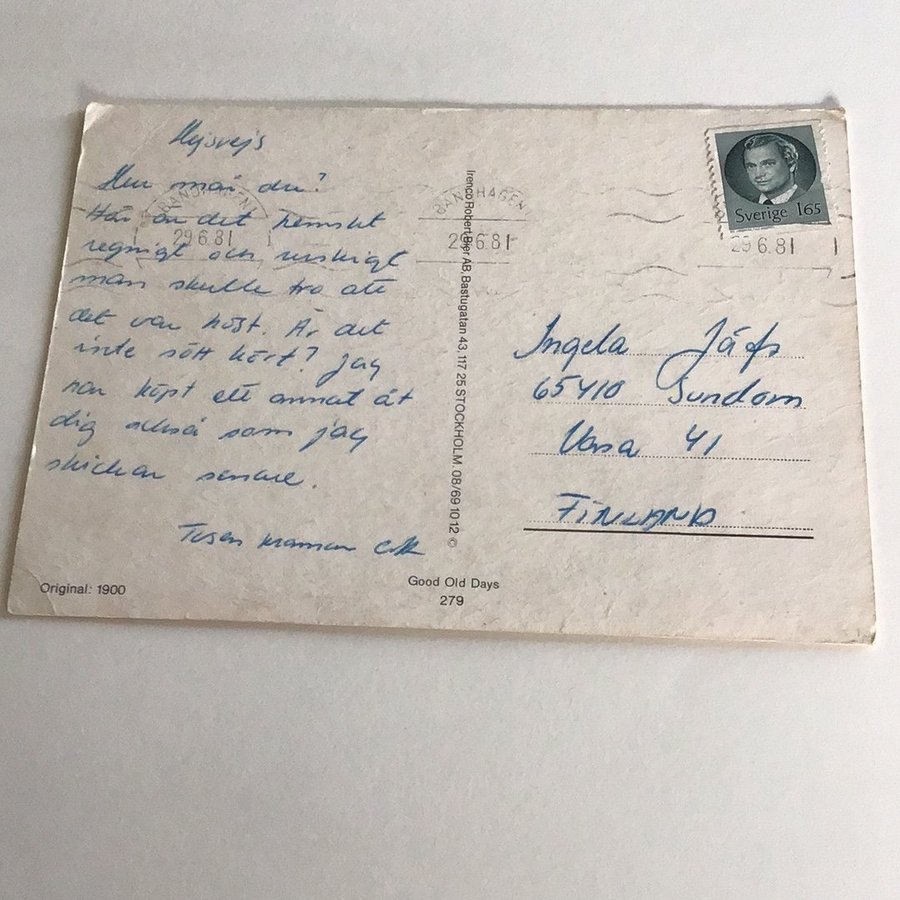 Hejsvejs
Hur mår du?
Här är det hemskt
regnigt och ruskigt
man skulle tro att
det var höst. Är det
inte sött kort? Jag
har köpt ett annat åt
dig också som jag
skickar senare.
Tusen kramar
Original: 1900
Good Old Days
279
Irenco Robert Bier AB, Bastugatan 43, 117 25 STOCKHOLM. 08/69 10 12 ©
BANDHAGEN 1
29.6.81
BANDHAGEN 1
29.6.81
29 6.81
Sverige 165
Ingela
65410 Sundom
Vasa 41
FINLAND